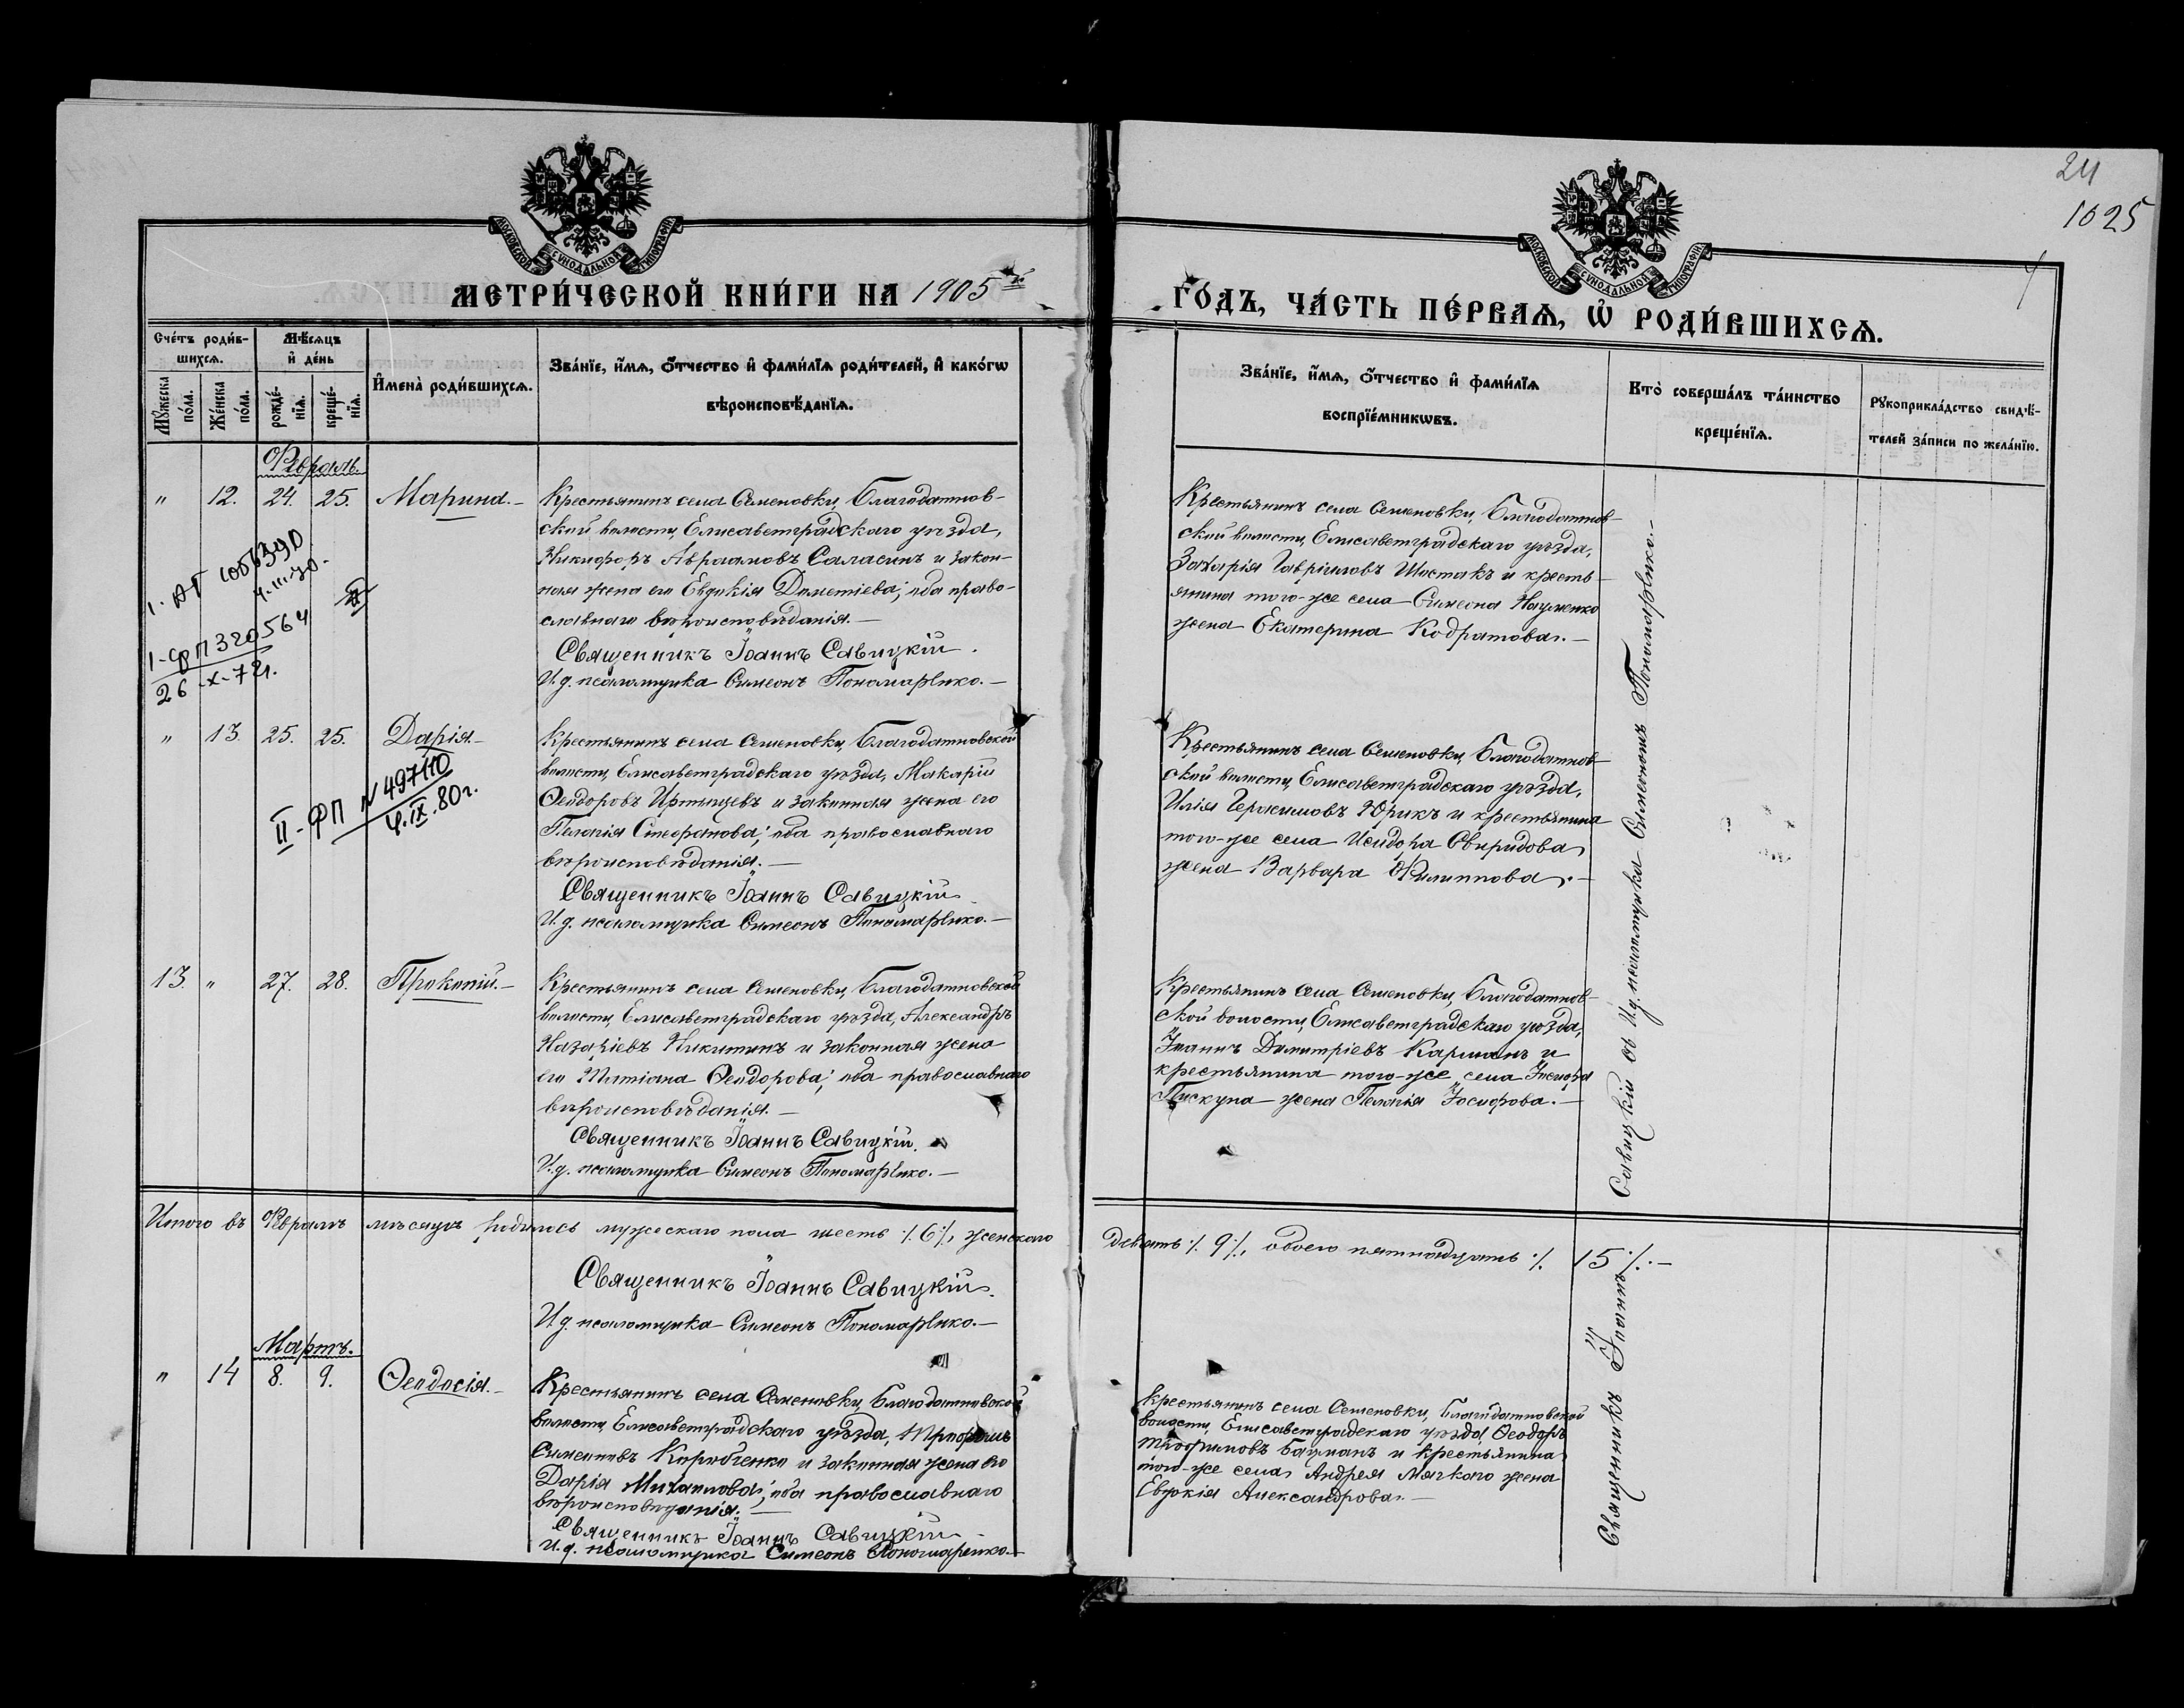 24
1025
МОСКОВСКОЙ СѴНОДАЛЬНОЙ ТИПОГРАФІИ
МОСКОВСКОЙ СѴНОДАЛЬНОЙ ТИПОГРАФІИ
МЕТРИ́ЧЕСКОЙ КНИ́ГИ НА 1905й
ГО́ДЪ, ЧА́СТЬ ПЕ́РВАѦ, Ѽ РОДИ́ВШИХСѦ.
Сче́тъ роди́в-
шихсѧ.
Мꙋ́жеска по́ла.
Же́нска по́ла.
Мѣ́сѧцъ
и҆ де́нь
рожде́-
нїѧ.
креще́-
нїѧ.
И҆мена̀ роди́вшихсѧ.
Зва́нїе, и҆́мѧ, ѻ҆́тчество и҆ фами́лїѧ роди́телей, и҆ како́гѡ
вѣроисповѣ́данїѧ.
Зва́нїе, и҆́мѧ, ѻ҆́тчество и҆ фами́лїѧ
воспрїе́мникѡвъ.
Кто̀ соверша́лъ та́инство
креще́нїѧ.
Рꙋкоприкла́дство свидѣ́-
телей за́писи по жела́нїю.
Февраль.
" 12. 24. 25. Марина.
Крестьянинъ села Семеновки, Благодатнов-
ской волости, Елисаветградскаго уѣзда,
Никифоръ Авраамовъ Саласинъ и закон-
ная жена его Евдокія Дометіева; оба право-
славнаго вѣроисповѣданія.
Священникъ Іоаннъ Савицкій.
И. д. псаломщика Симеонъ Пономаренко.
Крестьянинъ села Семеновки, Благодатнов-
ской волости, Елисаветградскаго уѣзда,
Захарія Гавріиловъ Шостакъ и кресть-
янина того-же села Симеона Науменко
жена Екатерина Кодратова.
I-ФП 320564
26-X-72г.
" 13. 25. 25. Дарія.
II-ФП N 497110
4.IX.80г.
Крестьянинъ села Семеновки, Благодатновской
волости, Елисаветградскаго уѣзда, Макарій
Ѳеодоровъ Иртыщевъ и законная жена его
Пелагія Стефанова; оба православнаго
вѣроисповѣданія.
Священникъ Іоаннъ Савицкій.
И. д. псаломщика Симеонъ Пономаренко.
Крестьянинъ села Семеновки, Благодатнов-
ской волости, Елисаветградскаго уѣзда,
Илія Герасимовъ Юрикъ и крестьянина
того-же села Исидора Свиридова
жена Варвара Филиппова.
13. " 27. 28. Прокопій.
Крестьянинъ села Семеновки, Благодатновской
волости, Елисаветградскаго уѣзда, Александръ
Назаріевъ Никитинъ и законная жена
его Татіана Ѳеодорова; оба православнаго
вѣроисповѣданія.
Священникъ Іоаннъ Савицкій.
И. д. псаломщика Симеонъ Пономаренко.
Крестьянинъ села Семеновки, Благодатнов-
ской волости, Елисаветградскаго уѣзда,
Іоаннъ Димитріевъ Карманъ и
крестьянина того-же села Іосифа
Пискуна жена Пелагія Іосифова.
Итого въ Февралѣ мѣсяцѣ родилось мужескаго пола шесть ·/. 6 ·/., женскаго
девять ·/. 9 ·/., обоего пятнадцать ·/. 15 ·/.
Священникъ Іоаннъ Савицкій.
И. д. псаломщика Симеонъ Пономаренко.
Мартъ.
" 14 8. 9. Ѳеодосія.
Крестьянинъ села Семеновки, Благодатновской
волости, Елисаветградскаго уѣзда, Трофимъ
Симеоновъ Коробченко и законная жена его
Дарія Михаилова; оба православнаго
вѣроисповѣданія.
Священникъ Іоаннъ Савицкій.
И. д. псаломщика Симеонъ Пономаренко.
Крестьянинъ села Семеновки, Благодатновской
волости, Елисаветградскаго уѣзда, Ѳеодоръ
Трофимовъ Бауманъ и крестьянина
того-же села Андрея Мягкаго жена
Евдокія Александрова.
Священникъ Іоаннъ Савицкій съ И. д. псаломщика Симеономъ Пономаренко.